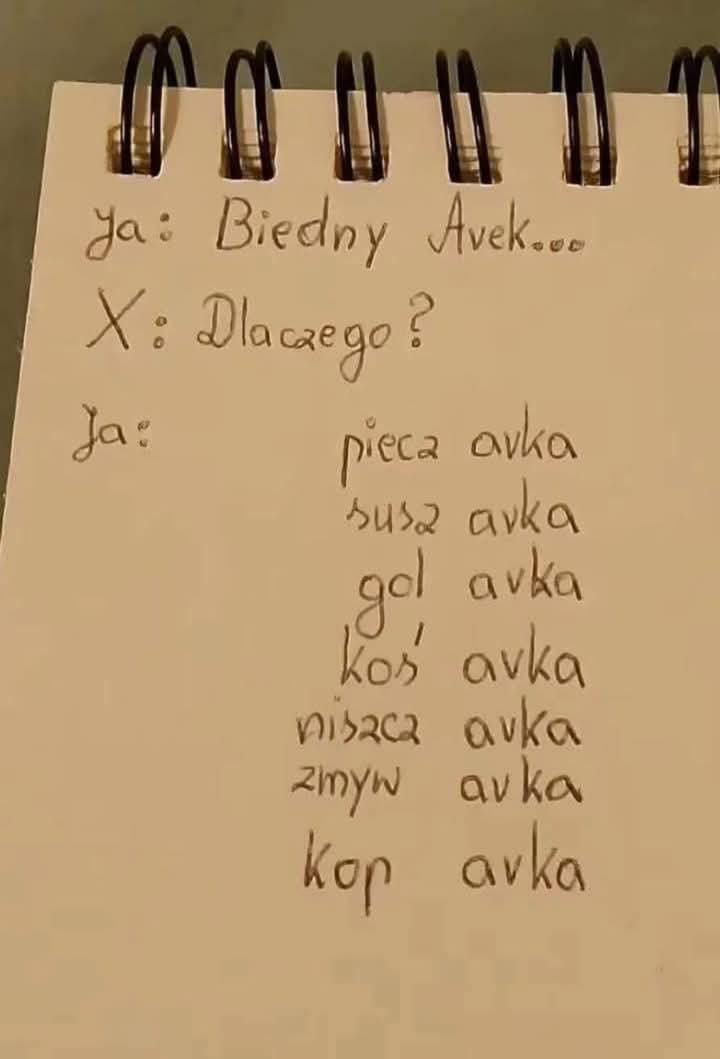 Ja: Biedny Avek...
X: Dlaczego?
Ja: piecz avka
susz avka
gol avka
koś avka
niszcz avka
zmyw avka
kop avka